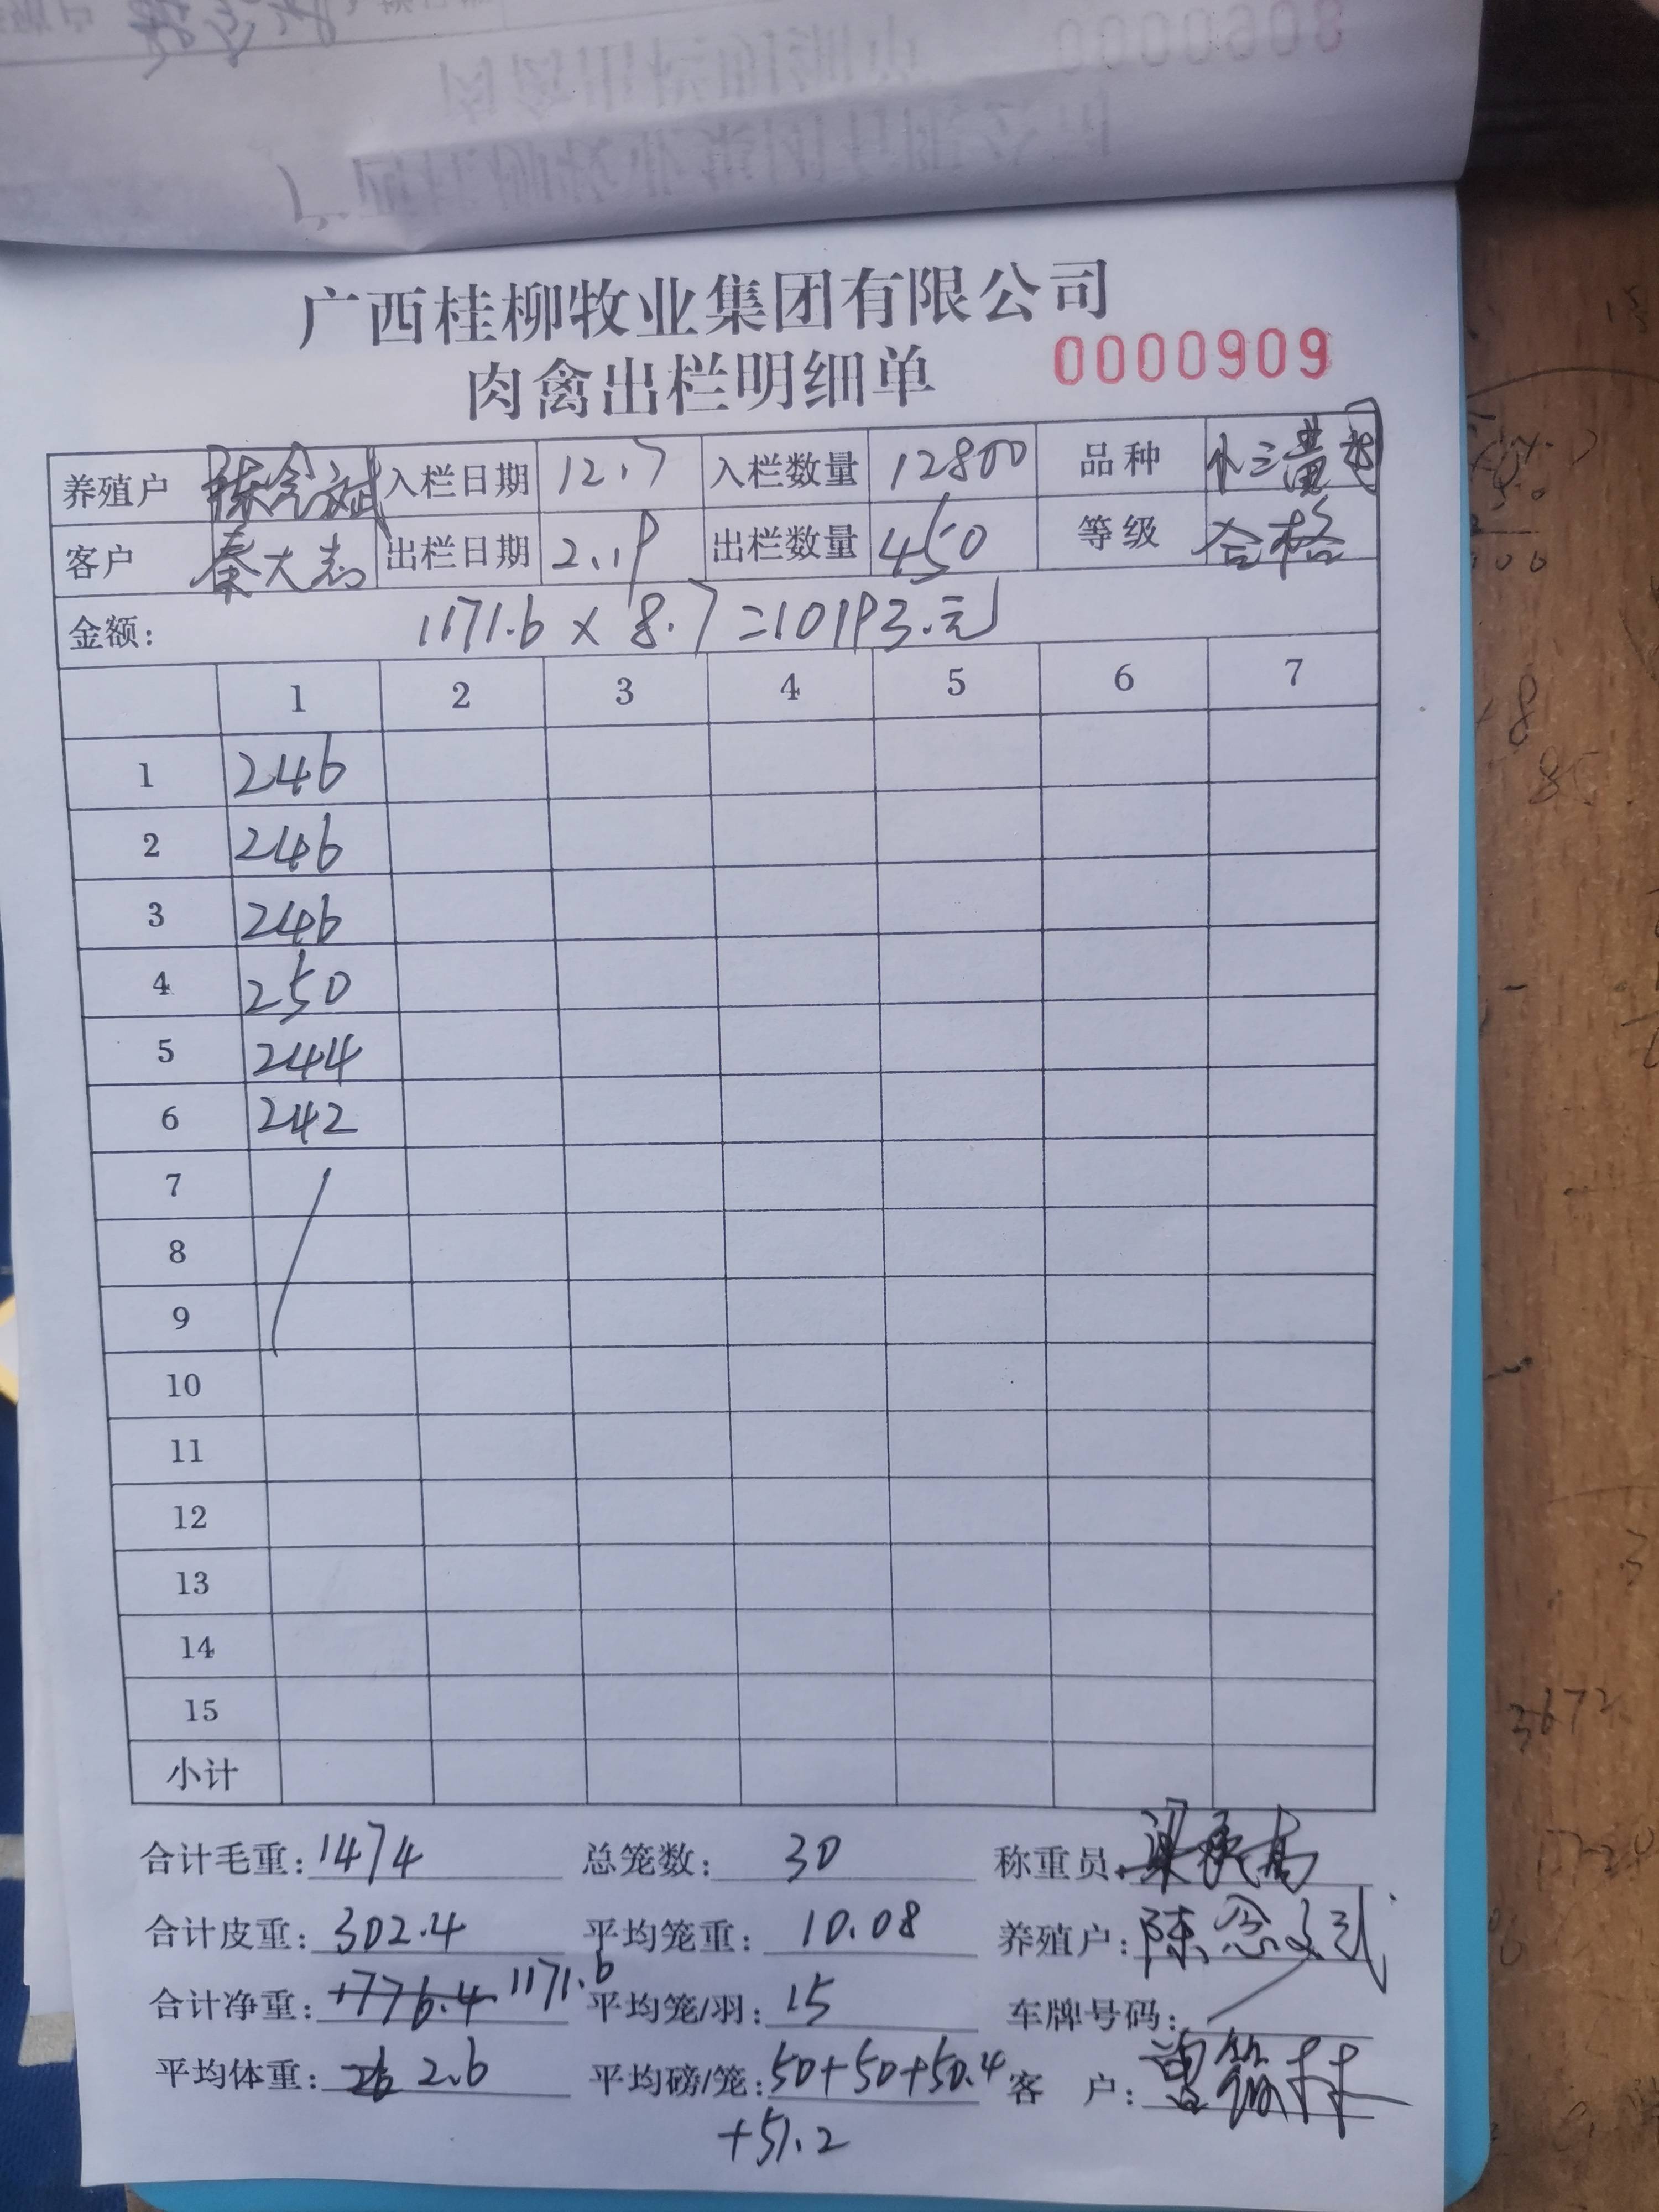 广西桂柳牧业集团有限公司
肉禽出栏明细单 0000909
养殖户 陈念斌 入栏日期 12.7 入栏数量 12800 品种 小三黄
客户 秦大志 出栏日期 2.19 出栏数量 450 等级 合格
金额: 1171.6 × 8.7 = 10193.元
1 2 3 4 5 6 7
1 246
2 246
3 246
4 250
5 244
6 242
7
8
9
10
11
12
13
14
15
小计
合计毛重: 1474 总笼数: 30 称重员:
合计皮重: 302.4 平均笼重: 10.08 养殖户: 陈念斌
合计净重: 1776.4 1171.6 平均笼/羽: 15 车牌号码:
平均体重: 2.6 平均磅/笼: 50+50+50.4 客 户:
+51.2